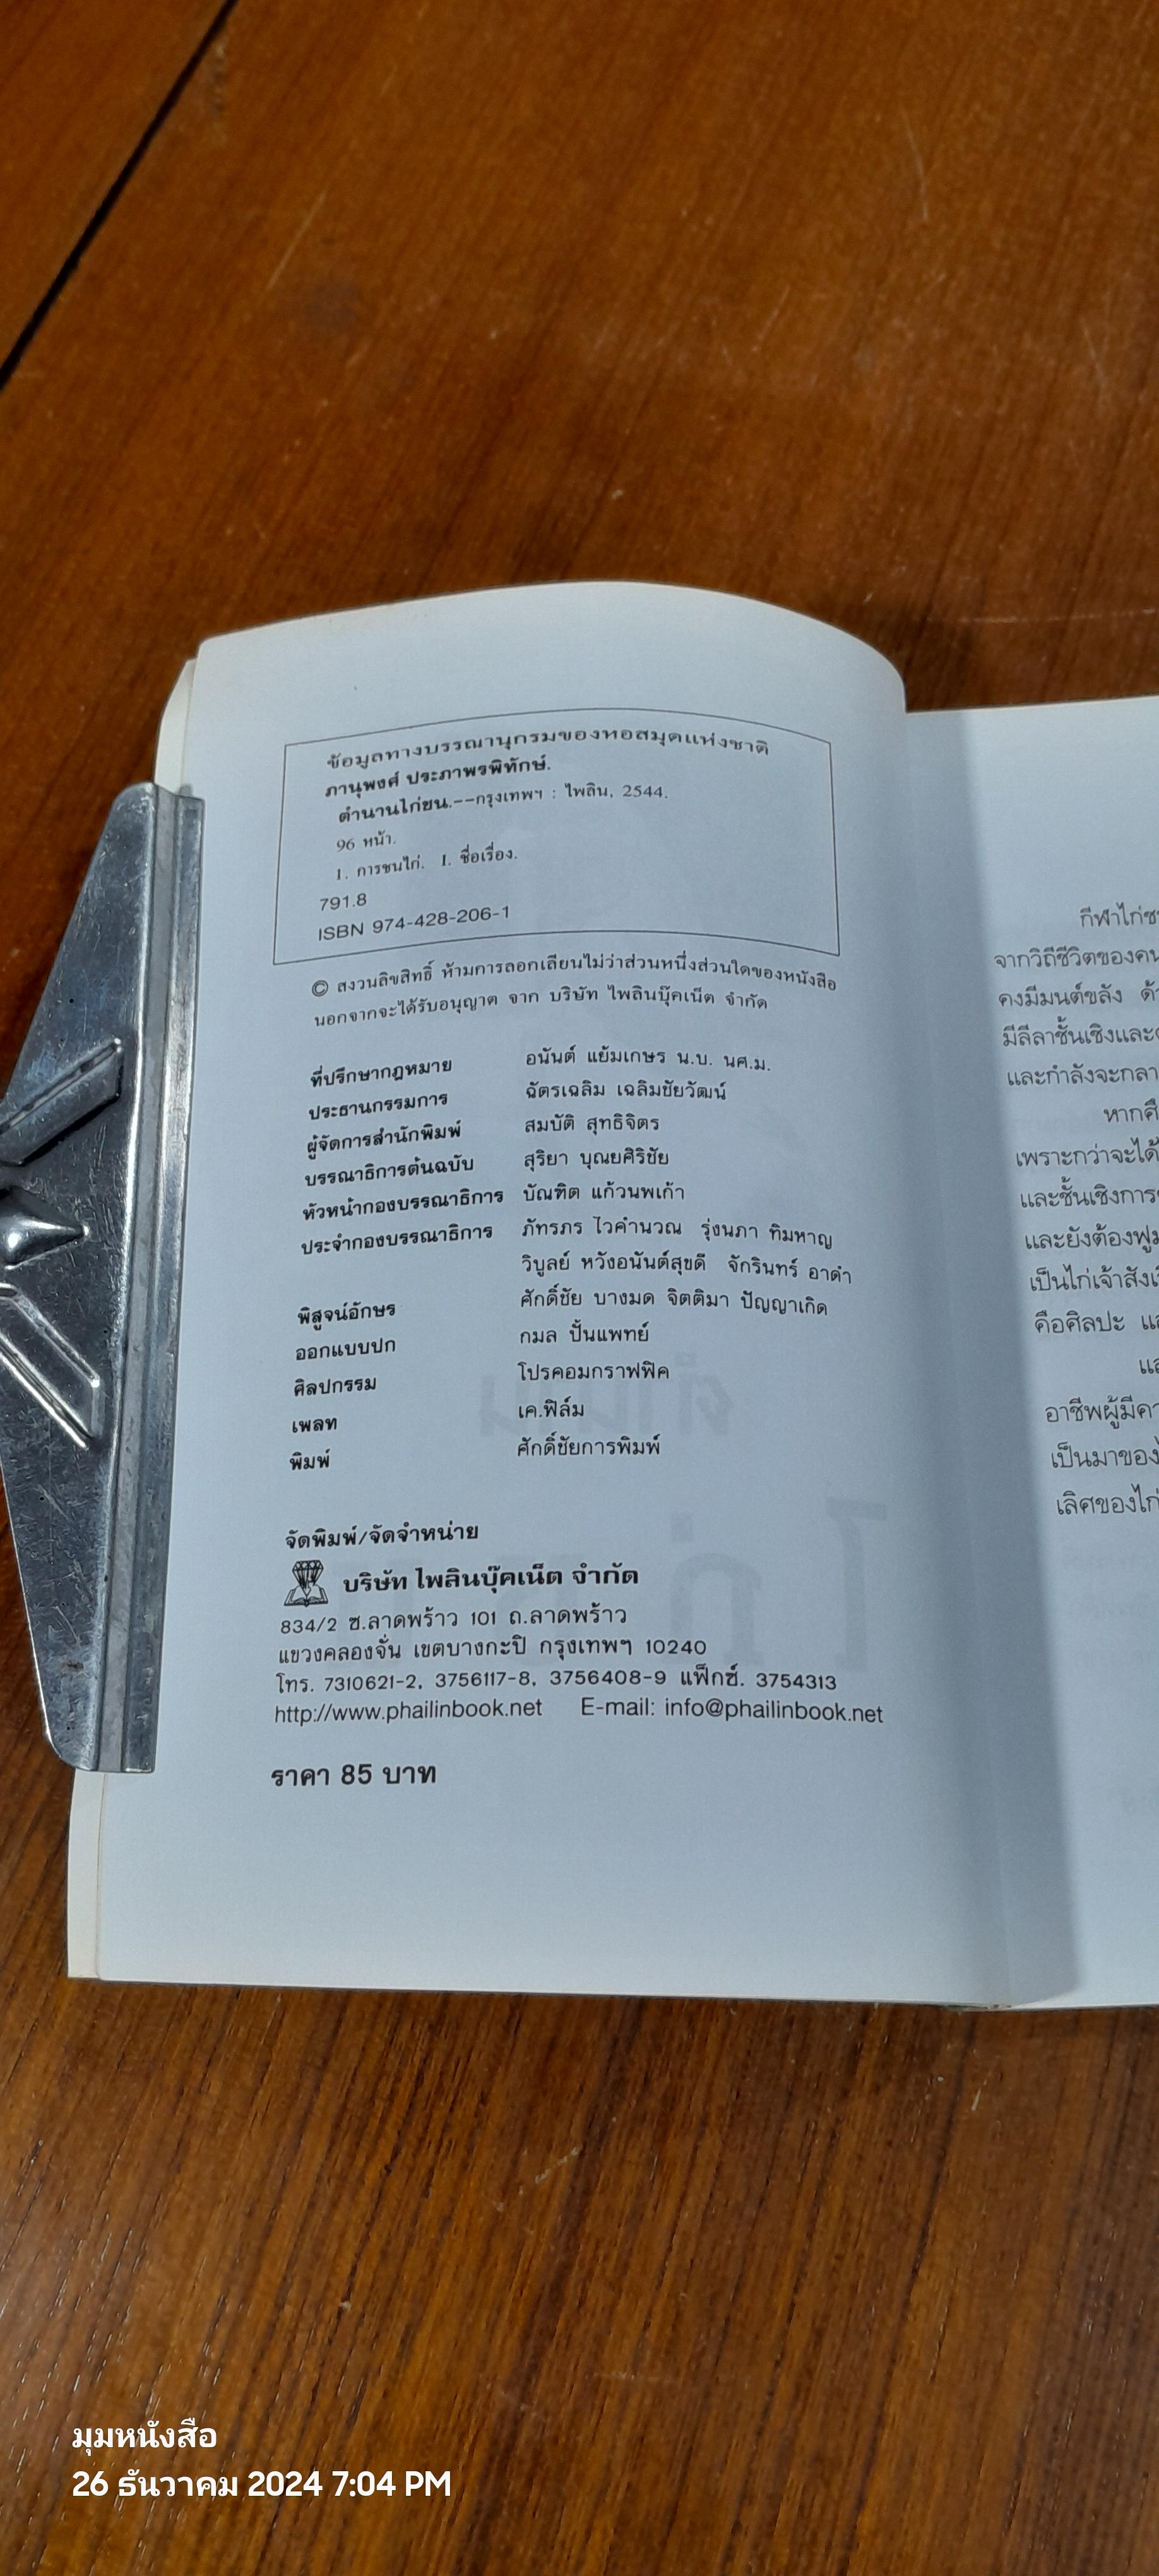 ข้อมูลทางบรรณานุกรมของหอสมุดแห่งชาติ
ภานุพงศ์ ประภาพรพิทักษ์.
ตำนานไก่ชน.--กรุงเทพฯ : ไพลิน, 2544.
96 หน้า.
1. การชนไก่. I. ชื่อเรื่อง.
791.8
ISBN 974-428-206-1
© สงวนลิขสิทธิ์ ห้ามการลอกเลียนไม่ว่าส่วนหนึ่งส่วนใดของหนังสือ
นอกจากจะได้รับอนุญาต จาก บริษัท ไพลินบุ๊คเน็ต จำกัด
ที่ปรึกษากฎหมาย อนันต์ แย้มเกษร น.บ. นศ.ม.
ประธานกรรมการ ฉัตรเฉลิม เฉลิมชัยวัฒน์
ผู้จัดการสำนักพิมพ์ สมบัติ สุทธิจิตร
บรรณาธิการต้นฉบับ สุริยา บุณยศิริชัย
หัวหน้ากองบรรณาธิการ บัณฑิต แก้วนพเก้า
ประจำกองบรรณาธิการ ภัทรภร ไวคำนวณ รุ่งนภา ทิมหาญ
วิบูลย์ หวังอนันต์สุขดี จักรินทร์ อาดำ
พิสูจน์อักษร ศักดิ์ชัย บางมด จิตติมา ปัญญาเกิด
ออกแบบปก กมล ปั้นแพทย์
ศิลปกรรม โปรคอมกราฟฟิค
เพลท เค.ฟิล์ม
พิมพ์ ศักดิ์ชัยการพิมพ์
จัดพิมพ์/จัดจำหน่าย
บริษัท ไพลินบุ๊คเน็ต จำกัด
834/2 ซ.ลาดพร้าว 101 ถ.ลาดพร้าว
แขวงคลองจั่น เขตบางกะปิ กรุงเทพฯ 10240
โทร. 7310621-2, 3756117-8, 3756408-9 แฟ็กซ์. 3754313
http://www.phailinbook.net E-mail: info@phailinbook.net
ราคา 85 บาท
กีฬาไก่ช
จากวิถีชีวิตของคน
คงมีมนต์ขลัง ด้
มีลีลาชั้นเชิงและ
และกำลังจะกลา
หากศึ
เพราะกว่าจะได้
และชั้นเชิงการ
และยังต้องฟูม
เป็นไก่เจ้าสังเ
คือศิลปะ แ
แ
อาชีพผู้มีคว
เป็นมาของ
เลิศของไก่
มุมหนังสือ
26 ธันวาคม 2024 7:04 PM